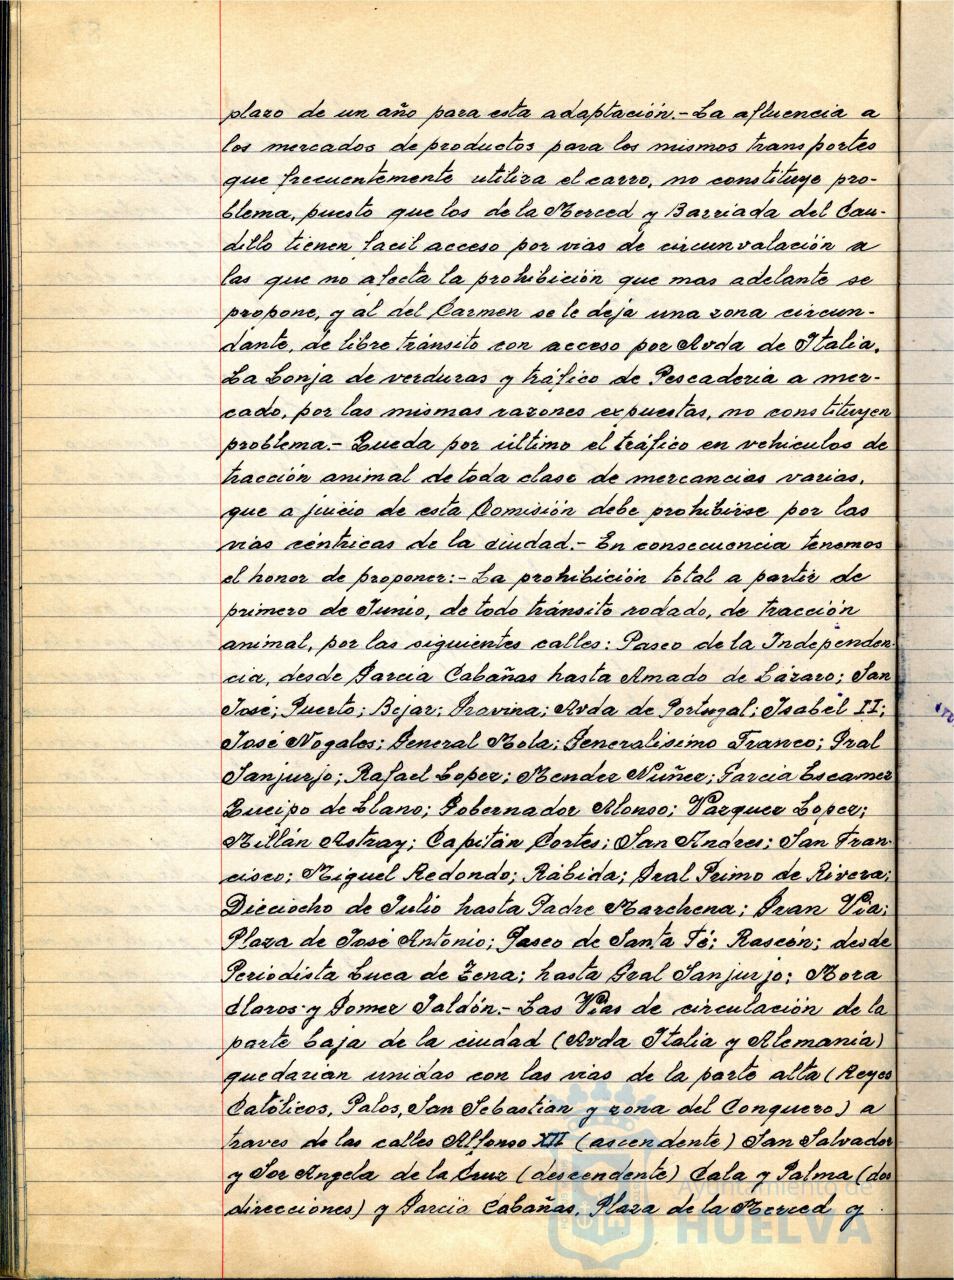 plazo de un año para esta adaptación.- La afluencia a
los mercados de productos para los mismos transportes
que frecuentemente utiliza el carro, no constituye pro-
blema, puesto que los de la Merced y Barriada del Cau-
dillo tienen facil acceso por vias de circunvalación a
las que no afecta la prohibición que mas adelante se
propone, y al del Carmen se le deja una zona circun-
dante, de libre tránsito con acceso por Avda de Italia.
La Lonja de verduras y tráfico de Pescaderia a mer-
cado, por las mismas razones expuestas, no constituyen
problema.- Queda por último el tráfico en vehículos de
tracción animal de toda clase de mercancias varias,
que a juicio de esta Comisión debe prohibirse por las
vias céntricas de la ciudad.- En consecuencia tenemos
el honor de proponer:- La prohibición total a partir de
primero de Junio, de todo tránsito rodado, de tracción
animal, por las siguientes calles: Paseo de la Independen-
cia, desde Garcia Cabañas hasta Amado de Lázaro; San
José; Puerto; Bejar; Gravina; Avda de Portugal; Isabel II;
José Nogales; General Mola; Generalisimo Franco; Gral
Sanjurjo; Rafael Lopez; Mendez Nuñez; Garcia Escamez
Queipo de Llano; Gobernador Alonso; Vazquez Lopez;
Millán Astray; Capitán Cortes; San Andres; San Fran-
cisco; Miguel Redondo; Rábida; Gral Primo de Rivera;
Dieciocho de Julio hasta Padre Marchena; Gran Via;
Plaza de José Antonio; Paseo de Santa Fé; Rascón; desde
Periodista Luca de Tena; hasta Gral Sanjurjo; Mora
Claros y Gomez Jaldón.- Las Vias de circulación de la
parte baja de la ciudad (Avda Italia y Alemania)
quedarian unidas con las vias de la parte alta (Reyes
Católicos, Palos, San Sebastian y zona del Conquero) a
traves de las calles Alfonso XII (ascendente) San Salvador
y Sor Angela de la Cruz (descendente) Cala y Palma (dos
direcciones) y Garcia Cabañas, Plaza de la Merced y
Ayuntamiento de
HUELVA